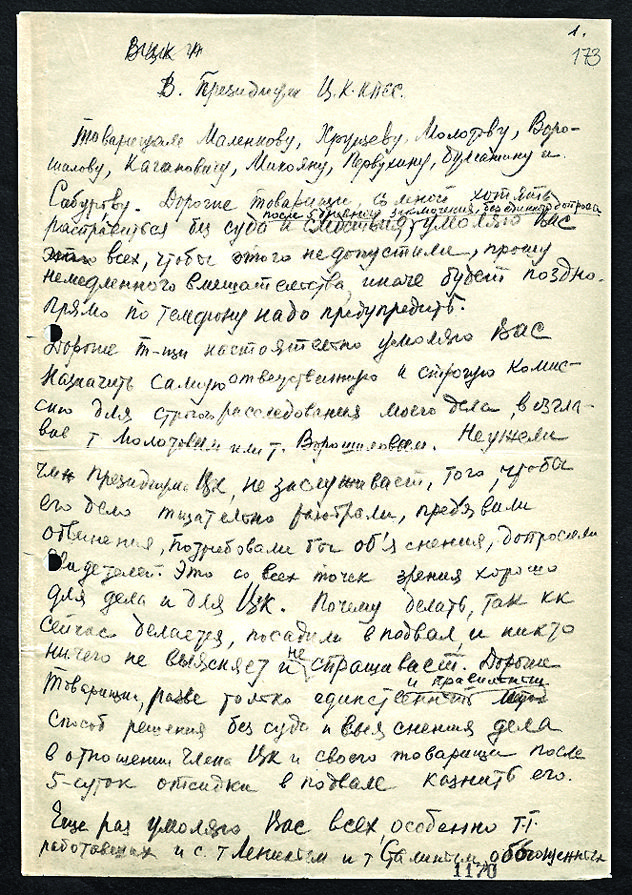 1.
173
В ЦК
В. Президиум Ц.К. КПСС.
Товарищам Маленкову, Хрущеву, Молотову, Воро-
шилову, Кагановичу, Микояну, Первухину, Булганину и
Сабурову. Дорогие товарищи, со мной хотят
после 5 дневного заключения, без единого допроса
расправиться без суда и следствия, умоляю Вас
всех, чтобы этого недопустили, прошу
немедленного вмешательства, иначе будет поздно.
Прямо по телефону надо предупредить.
Дорогие т-щи настоятельно умоляю Вас
назначить самую ответственную и строгую комис-
сию для строгого расследования моего дела, возгла-
ве т Молотовым или т. Ворошиловым. Неужели
член президиума Цк, не заслуживает, того, чтобы
его дело тщательно разобрали, предъявили
обвинения, потребовали бы объяснения, допросили
свидетелей. Это со всех точек зрения хорошо
для дела и для Цк. Почему делать, так как
сейчас делается, посадили в подвал и никто
ничего не выясняет и не спрашивает. Дорогие
и правильный
товарищи, разве только единственный
способ решения без суда и выяснения дела
в отношении члена Цк и своего товарища после
5-суток отсидки в подвале казнить его.
Еще раз умоляю Вас всех, особенно т.т.
работавших и с. т Лениным и т Сталиным,
1170